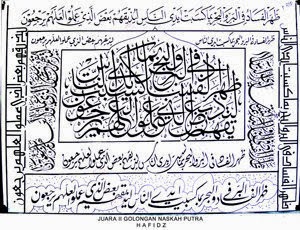 ظهر الفساد في البر والبحر بما كسبت أيدي الناس ليذيقهم بعض الذي عملوا لعلهم يرجعون
ظهر الفساد في البر والبحر بما كسبت أيدي الناس ليذيقهم بعض الذي عملوا لعلهم يرجعون
ظهر الفساد في البر والبحر بما كسبت أيدي الناس ليذيقهم بعض الذي عملوا لعلهم يرجعون
ظهر الفساد في البر والبحر بما كسبت أيدي الناس ليذيقهم بعض الذي عملوا لعلهم يرجعون
ظهر الفساد في البر والبحر بما كسبت أيدي الناس ليذيقهم بعض الذي عملوا لعلهم يرجعون
JUARA II GOLONGAN NASKAH PUTRA
HAFIDZ